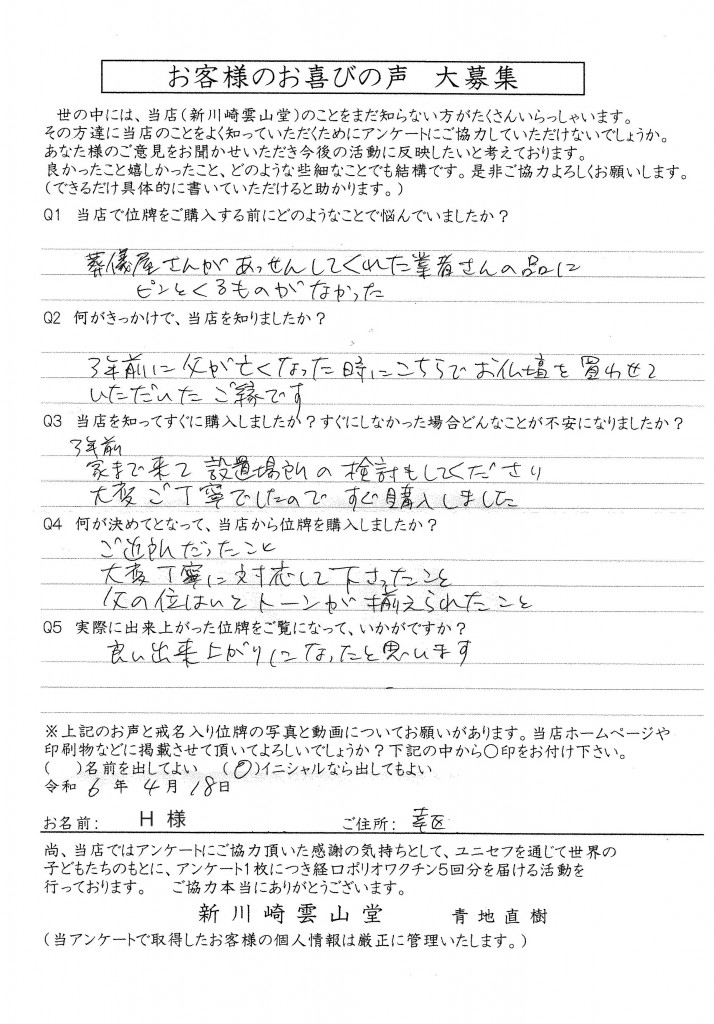 お客様のお喜びの声 大募集
世の中には、当店(新川崎雲山堂)のことをまだ知らない方がたくさんいらっしゃいます。
その方達に当店のことをよく知っていただくためにアンケートにご協力していただけないでしょうか。
あなた様のご意見をお聞かせいただき今後の活動に反映したいと考えております。
良かったこと嬉しかったこと、どのような些細なことでも結構です。是非ご協力よろしくお願いします。
(できるだけ具体的に書いていただけると助かります。)
Q1 当店で位牌をご購入する前にどのようなことで悩んでいましたか?
葬儀屋さんがあっせんしてくれた業者さんの品に
ピンとくるものがなかった
Q2 何がきっかけで、当店を知りましたか?
3年前に父が亡くなった時にこちらでお仏壇を買わせて
いただいたご縁です
Q3 当店を知ってすぐに購入しましたか?すぐにしなかった場合どんなことが不安になりましたか?
3年前
家まで来て設置場所の検討もしてくださり
大変ご丁寧でしたのですぐ購入しました
Q4 何が決めてとなって、当店から位牌を購入しましたか?
ご近所だったこと
大変丁寧に対応して下さったこと
父の位はいとトーンが揃えられたこと
Q5 実際に出来上がった位牌をご覧になって、いかがですか?
良い出来上がりになったと思います
※上記のお声と戒名入り位牌の写真と動画についてお願いがあります。当店ホームページや
印刷物などに掲載させて頂いてよろしいでしょうか?下記の中から○印をお付け下さい。
( )名前を出してよい (○)イニシャルなら出してもよい
令和 6 年 4 月 18日
お名前: H 様 ご住所: 幸区
尚、当店ではアンケートにご協力頂いた感謝の気持ちとして、ユニセフを通じて世界の
子どもたちのもとに、アンケート1枚につき経口ポリオワクチン5回分を届ける活動を
行っております。 ご協力本当にありがとうございます。
新川崎雲山堂 青地直樹
(当アンケートで取得したお客様の個人情報は厳正に管理いたします。)